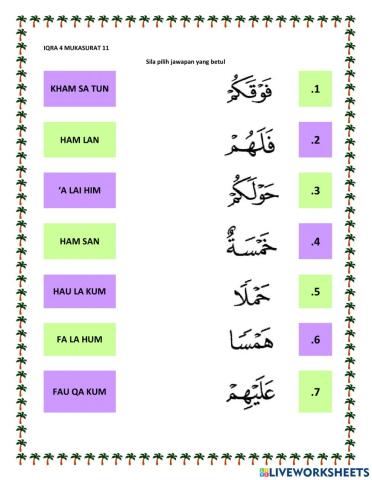 IQRA 4 MUKASURAT 11
Sila pilih jawapan yang betul
KHAM SA TUN فَوْقَكُمْ .1
HAM LAN فَلَهُمْ .2
‘A LAI HIM حَوْلَكُمْ .3
HAM SAN خَمْسَةٌ .4
HAU LA KUM حَمْلًا .5
FA LA HUM هَمْسًا .6
FAU QA KUM عَلَيْهِمْ .7
LIVEWORKSHEETS